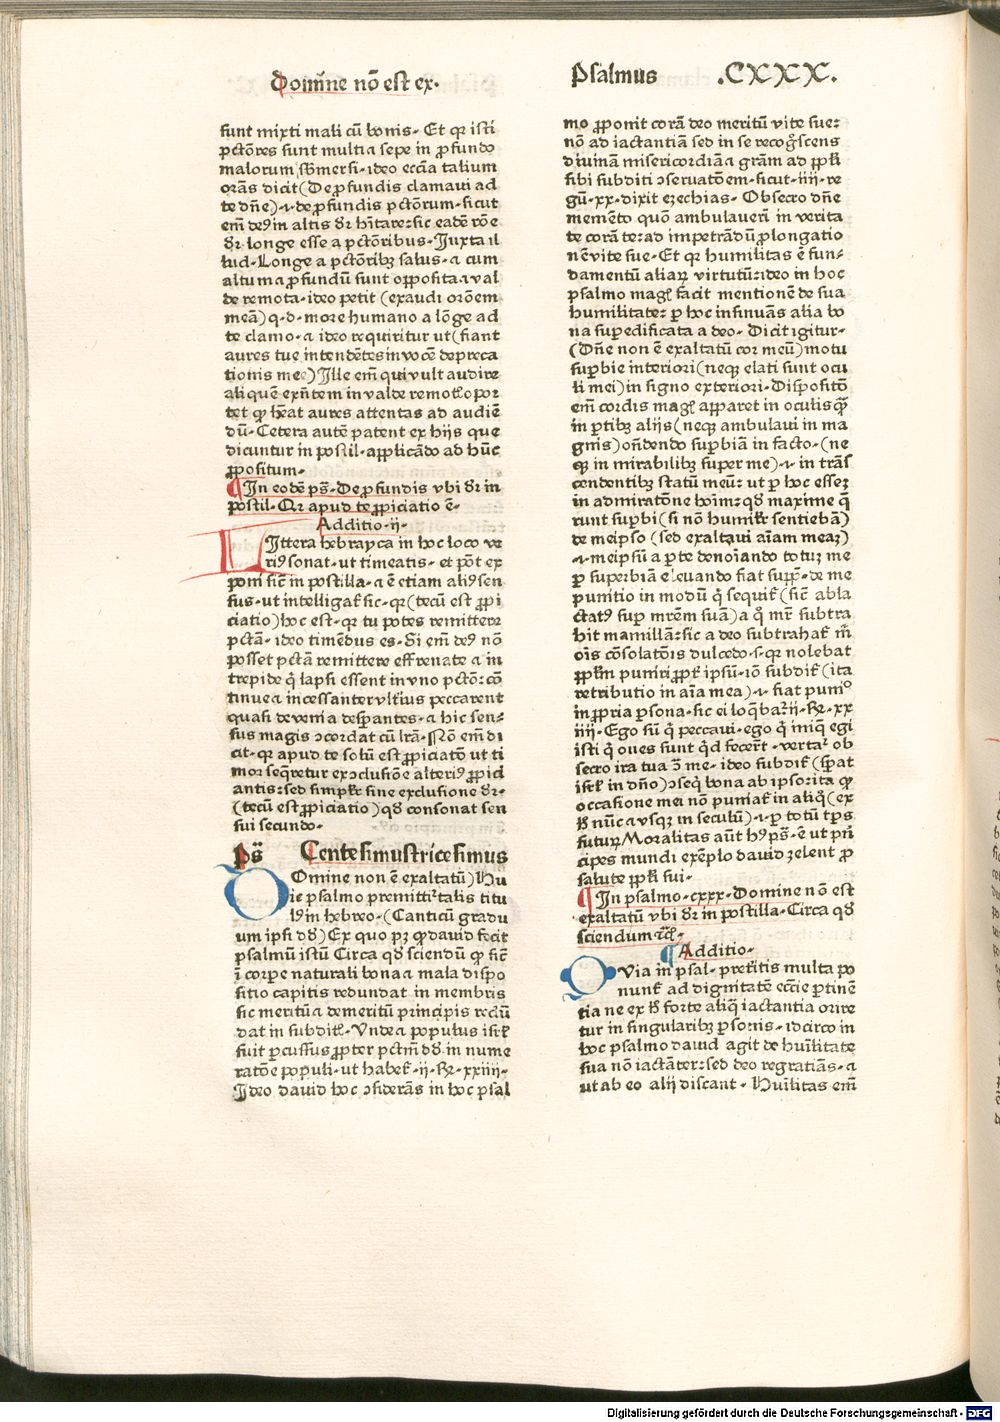 Domine nō est ex.
Psalmus .CXXX.
sunt mixti mali cū bonis. Et qꝛ isti
pctōres sunt multi ⁊ sepe in ꝓfundo
malorum sbmersi. ideo ecctia talium
orās dicit (De ꝓfundis clamaui ad
te dn̄e) .i. de ꝓfundis pctōrum. sicut
em̄ de9 in altis dr hītare: sic eadē rōe
dr longe esse a pctōribus. Juxta il
lud. Longe a pctōribꝫ salus. ⁊ cum
altum ⁊ ꝓfundū sunt opposita. ⁊ val
de remota. ideo petit (exaudi orōem
meā) q. d. more humano a lōge ad
te clamo. ⁊ ideo requiritur ut (fiant
aures tue intendētes in vocē depreca
tionis mee) Ille em̄ qui vult audire
aliquē exn̄tem in valde remoto opor
tet ꝙ heat aures attentas ad audiē
dū. Cetera autē patent ex hijs que
dicuntur in postil. applicādo ad hūc
ꝓpositum.
¶ In eodē ps̄. De ꝓfundis vbi dr in
postil. Qꝛ apud te ꝓpiciatio ē.
Additio .ij.
LIttera hebrayca in hoc loco ve
ri9 sonat. ut timeatis. et pōt ex
poni sic̄ in postilla. ⁊ ē etiam ali9 sen
sus. ut intelligat̄ sic. qꝛ (tecū est ꝓpi
ciatio) hoc est. qꝛ tu potes remittere
pctā. ideo timēdus es. Si em̄ de9 nō
posset pctā remittere effrenate ⁊ in
trepide q̄ lapsi essent in vno pctō: cō
tinue ⁊ incessanter vlteri9 peccarent
quasi de venia despantes. ⁊ hic sen⸗
sus magis ↄcordat cū lrā. Nō em̄ di
cit. qꝛ apud te solū est ꝓpiciatō ut ti
mor seq̄retur ex ↄclusiōe alteri9 ꝓpici
antis: sed simplr sine exclusione dr.
(tecū est ꝓpiciatio) qd consonat sen
sui secundo.
ps̄ Centesimustricesimus
DOmine non ē exaltatū) Hu
ic psalmo premittit̄ talis titu
l9 in hebreo. (Canticū gradu
um ipsi dd) Ex quo pꝫ ꝙ dauid fecit
psalmū istū Circa qd sciendū ꝙ sic̄
ī corpe naturali bona ⁊ mala dispo
sitio capitis redundat in membris
sic meritū ⁊ demeritū principis redū
dat in subdit. Vnde ⁊ populus isrl
fuit ꝑcussus ꝓpter pctm̄ dd in nume
ratōe populi. ut habet. ij. R. xxiiij.
Ideo dauid hoc ↄsiderās in hoc psal
mo ꝓponit corā deo meritū vite sue:
nō ad iactantiā sed in se recogscens
diuinā misericordiā ⁊ grām ad ppl̄i
sibi subditi ↄseruatōem. sicut. iiij. re
gū. xx. dixit ezechias. Obsecro dn̄e
memēto quō ambulauerī in verita
te corā te: ad impetrādū ꝓlongatio
nē vite sue. Et qꝛ humilitas ē fun⸗
damentū aliaꝝ virtutū: ideo in hoc
psalmo mag facit mentionē de sua
humilitate: ꝑ hoc insinuās alia bo
na supedificata a deo. Dicit igitur.
(Dn̄e non ē exaltatū cor meū) motu
supbie interiori (neqꝫ elati sunt ocu
li mei) in signo exteriori. Dispositō
em̄ cordis mag apparet in oculis q̄
in ꝑtibꝫ alijs (neqꝫ ambulaui in ma
gnis) on̄dendo supbiā in facto. (ne
qꝫ in mirabilibꝫ super me) .i. in trās
cendentibꝫ statū meū: ut ꝑ hoc esseꝫ
in admiratōne hoim: qd maxime q̄
runt supbi (si nō humilr sentiebā)
de meipso (sed exaltaui aīam meaꝫ)
.i. meipsū a ꝑte denoīando totuꝫ me
ꝑ superbiā eleuando fiat supp. de me
punitio in modū q̄ sequit̄ (sic̄ abla
ctat9 sup mrēm suā) a q̄ mr̄ subtra
hit mamillā: sic a deo subtrahat̄ m̄
oīs cōsolatōis dulcedo. s. qꝛ nolebat
ppl̄m puniri ꝓpt̄ ipsū. iō subdit̄ (ita
retributio in aīa mea) .i. fiat punio
in ꝓpria psona. sic ei loq̄bat̄ ij. R. xx
iiij. Ego sū q̄ peccaui. ego q̄ iniq̄ egi
isti q̄ oues sunt q̄d fecert̄. vertat̄ ob
secro ira tua ↄ̄ me. ideo subdit̄ (sperat
isrl̄ in dn̄o) ↄseq̄ bona ab ipso. ita ꝙ
occasione mei nō puniat̄ in aliq̄ (ex
h̄ nūc ⁊ vsqꝫ in seculū) .i. ꝑ totū tps
futuꝝ. Moralitas aūt h9 ps̄. ē ut pri
cipes mundi exēplo dauid zelent ꝓ
salute ppl̄i sui.
¶ In psalmo. cxxx. Domine nō est
exaltatū vbi dr in postilla. Circa qd
sciendum ⁊c̄.
¶ Additio.
QVia in psal. pretitis multa po
nunt̄ ad dignitatē eccīe ꝑtinē
tia ne ex h̄ forte aliq̄ iactantia orire
tur in singularibꝫ psonis. idcirco in
hoc psalmo dauid agit de huīlitate
sua nō iactāter: sed deo regratiās. ⁊
ut ab eo alij discant. Huīlitas em̄
Digitalisierung gefördert durch die Deutsche Forschungsgemeinschaft - DFG